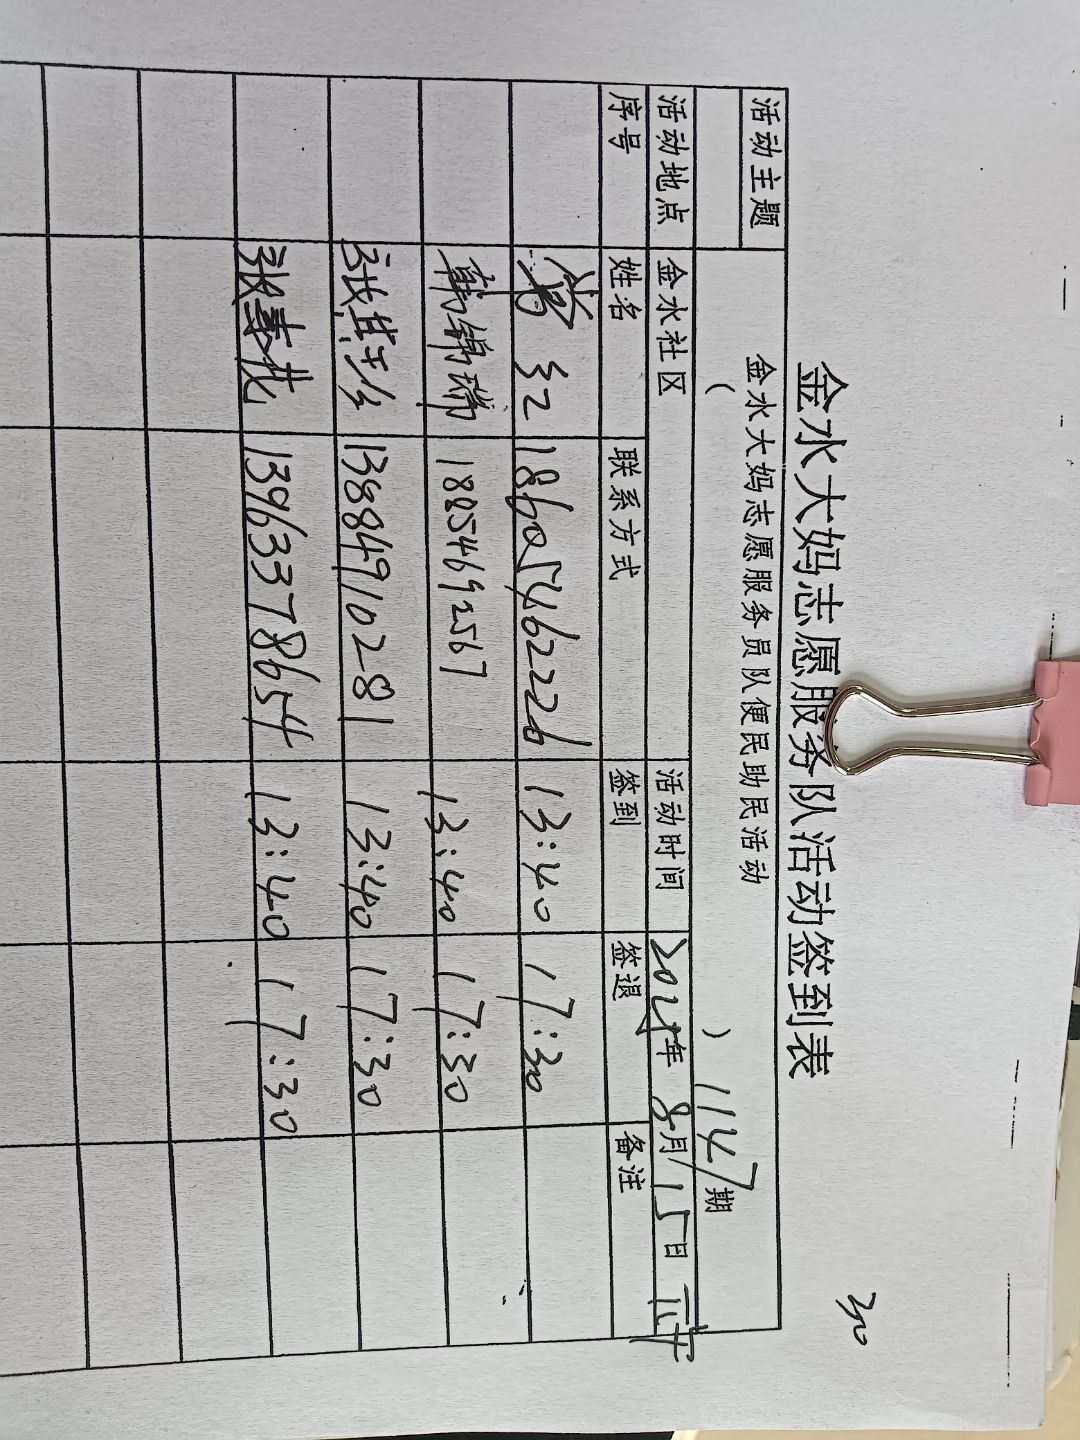 30
金水大妈志愿服务队活动签到表
活动主题 金水大妈志愿服务员队便民助民活动
( ) 1147期
活动地点 金水社区 活动时间 2024年8月15日
序号 姓名 联系方式 签到 签退 备注
18605462226 13:40 17:30
韩锦瑞 18854692567 13:40 17:30
13884910281 13:40 17:30
张素花 13963378654 13:40 17:30